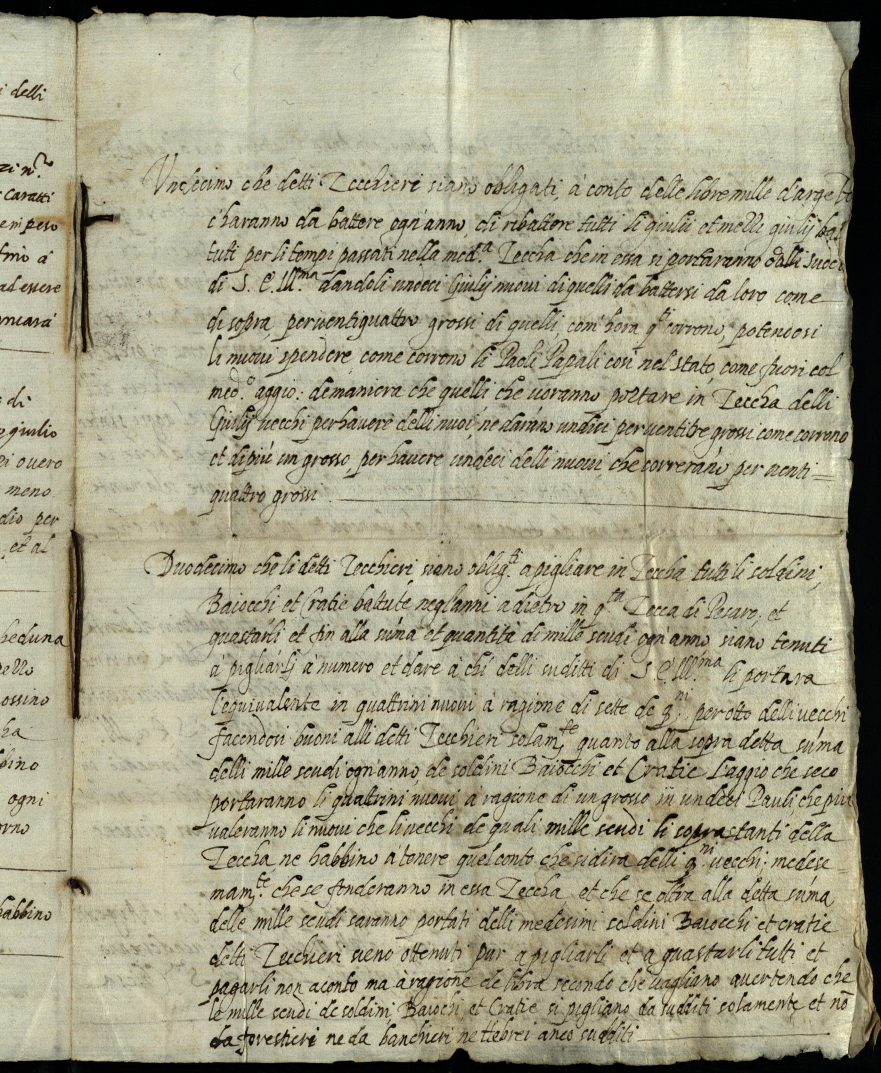 i delli
Caratti
en peso
trio à
ad essere
ancarà
di
giulio
di overo
meno
dio per
et al
beduna
pello
ossino
bino
ogni
orno
habbino
Undecimo che detti Zecchieri siano obligati, à conto delle libre mille d'argeto
c'haranno da battere ogn'anno, di ribattere tutti li giulii et mezzi giulij bat
tuti per li tempi passati nella med.ª Zeccha che in essa si portaranno dalli
di S. E. Ill.ma dandoli undeci Giulij nuovi di quelli da battersi da loro come
di sopra per ventiquattro grossi di quelli, com'hora q.i corrono, potendosi
li nuovi spendere come corrono li Paoli Papali cosi nel stato come fuori col
med.º aggio: de maniera che quelli che voranno portare in Zeccha delli
Giulij vecchi per havere delli nuovi, ne daranno undici per ventitre grossi come corrono
et di più un grosso per havere undeci delli nuovi, che correrano per venti=
quattro grossi
Duodecimo che li detti Zecchieri siano oblig.ti a pigliare in Zeccha tutti li soldini,
Baiocchi et Cratie battute negl'anni adietro in q.ta Zecca di Pesaro, et
guastarli et fin alla suma et quantità di mille scudi ogn'anno siano tenuti
à pigliarli à numero et dare à chi delli suditti di S. E. Ill.ma li portara
l'equivalente in quattrini nuovi à ragione di sette de q.ni per otto delli vecchi
facendosi buoni alli detti Zecchieri solam.te quanto alla sopra detta suma
delli mille scudi ogn'anno de soldini Baiocchi et Cratie l'aggio che seco
portaranno li quattrini nuovi à ragione di un grosso in undeci Pauli che più
valeranno li nuovi che li vecchi de quali mille scudi li soprastanti della
Zeccha ne habbino à tenere quel conto che si dira delli q.ni vecchi; medese
mam.te che se fonderanno in essa Zeccha et che se oltra alla detta suma
delle mille scudi saranno portati delli medesimi soldini Baiocchi et cratie
detti Zecchieri sieno ottenuti pur a pigliarli et a guastarli tutti et
pagarli non a conto ma à ragione de libra secondo che vagliano avertendo che
le mille scudi de soldini Baiochi et Cratie si pigliano da sudditi solamente et nō
da forestieri ne da bancheri ne Hebrei anco sudditi